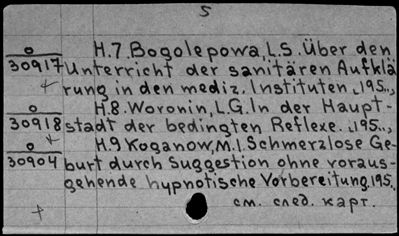 5
0 H.7 Bogolepowa, L.S. Über den
30917 Unterricht der sanitären Aufklä
rung in den mediz. Instituten., 195..,
0 H.8. Woronin, L.G. In der Haupt-
30918 stadt der bedingten Reflexe., 195..,
0 H.9 Koganow, M.I. Schmerzlose Ge-
30904 burt durch Suggestion ohne voraus-
gehende hypnotische Vorbereitung. 195..
см. след. карт.